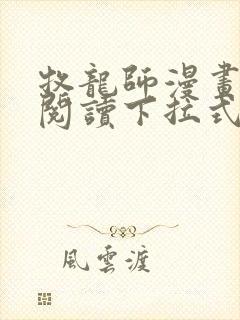 牧龍師漫畫
閱讀下拉式
風雲渡